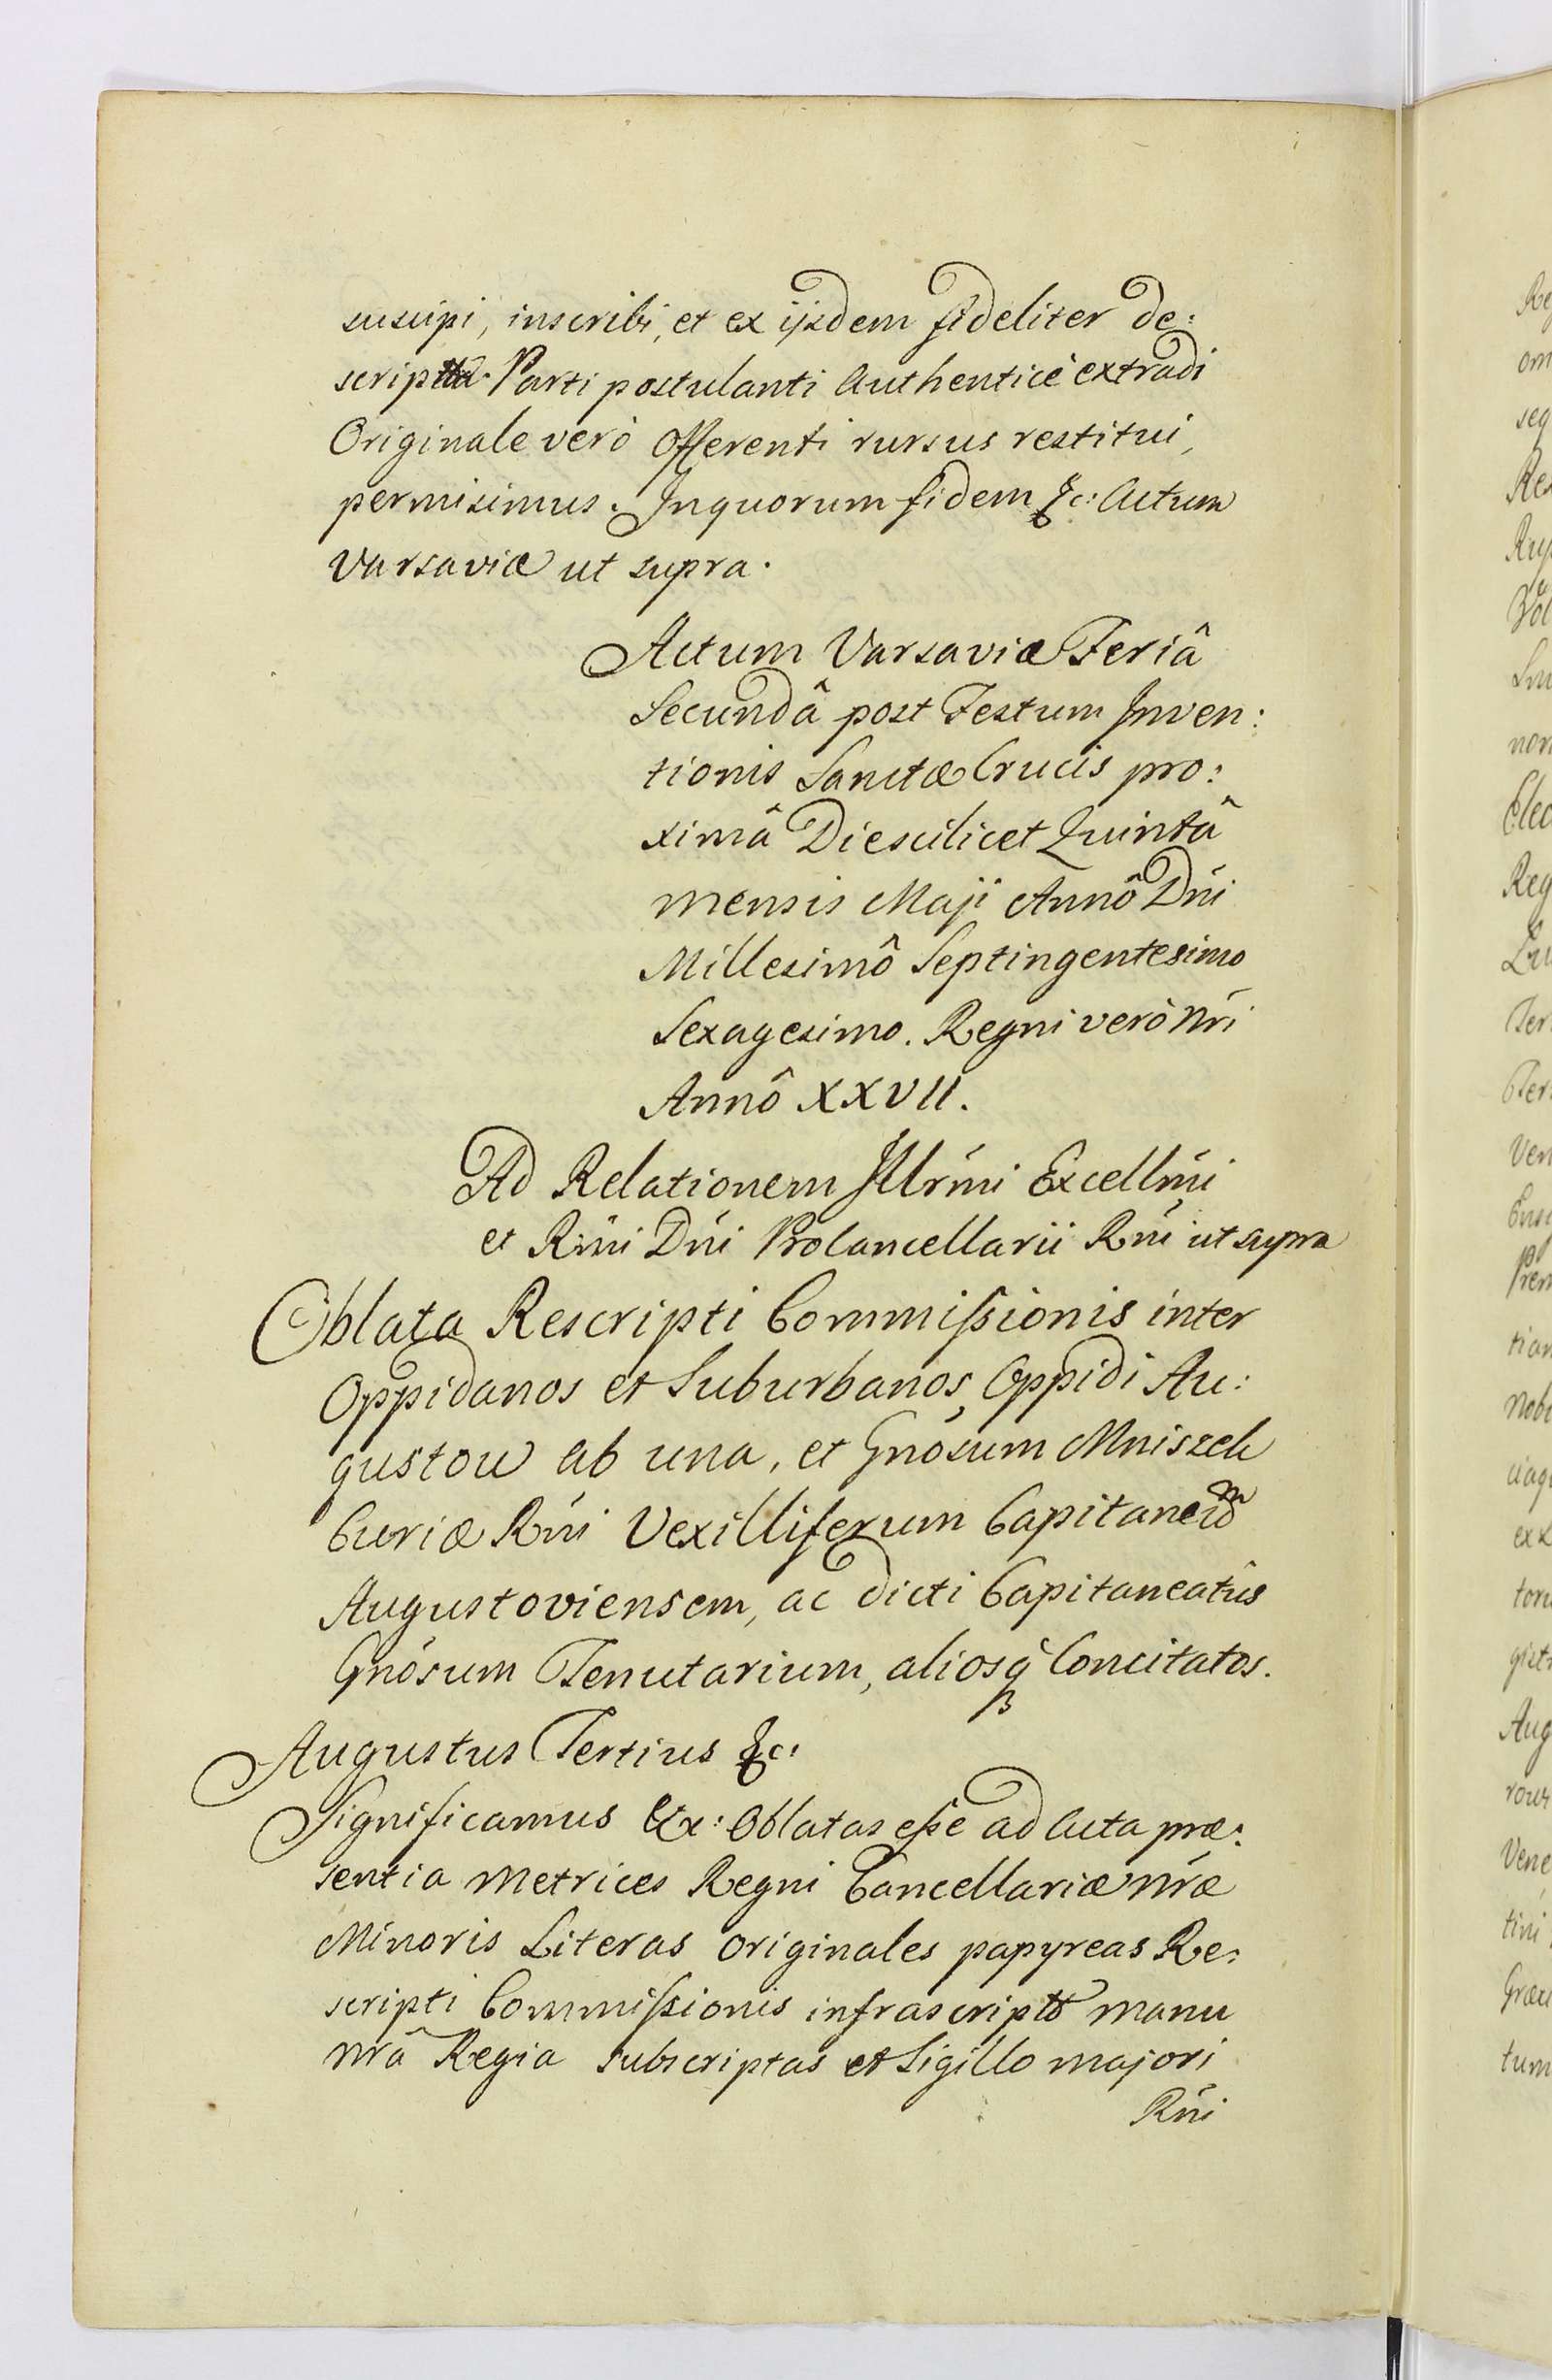 suscipi, inscribi, et ex ijsdem fideliter de:
scripta Parti postulanti Authenticè extradi
Originale verò Offerenti rursus restitui,
permisimus. Inquorum fidem &c: Actum
Varsaviæ ut supra.
Actum Varsaviæ Feriâ
Secundâ post Festum Inven:
tionis Sanctæ Crucis pro:
ximâ Die scilicet Quintâ
mensis Maji Annô Dńi
Millesimô Septingentesimo
Sexagesimo. Regni verò Nŕi
Annô XXVII.
Ad Relationem Illŕmi Excellḿi
et Rḿi Dńi Procancellarii Rńi ut supra
Oblata Rescripti Commißionis inter
Oppidanos et Suburbanos Oppidi Au:
gustow ab una, et Gnósum Mniszch
Curiæ Rńi Vexilliferum Capitaneum
Augustoviensem, ac dicti Capitaneatûs
Gnósum Tenutarium, aliosq́ Concitatos.
Augustus Tertius &c:
Significamus &c: Oblatas eße ad Acta præ:
sentia Metrices Regni Cancellariæ Nŕæ
Minoris Literas originales papyreas Re:
scripti Commißionis infrascripti manu
Nŕâ Regia subscriptas et Sigillo majori
Rńi
Reg
om
seq
non
Elec
Reg
Ter
Ven
nobi
tum